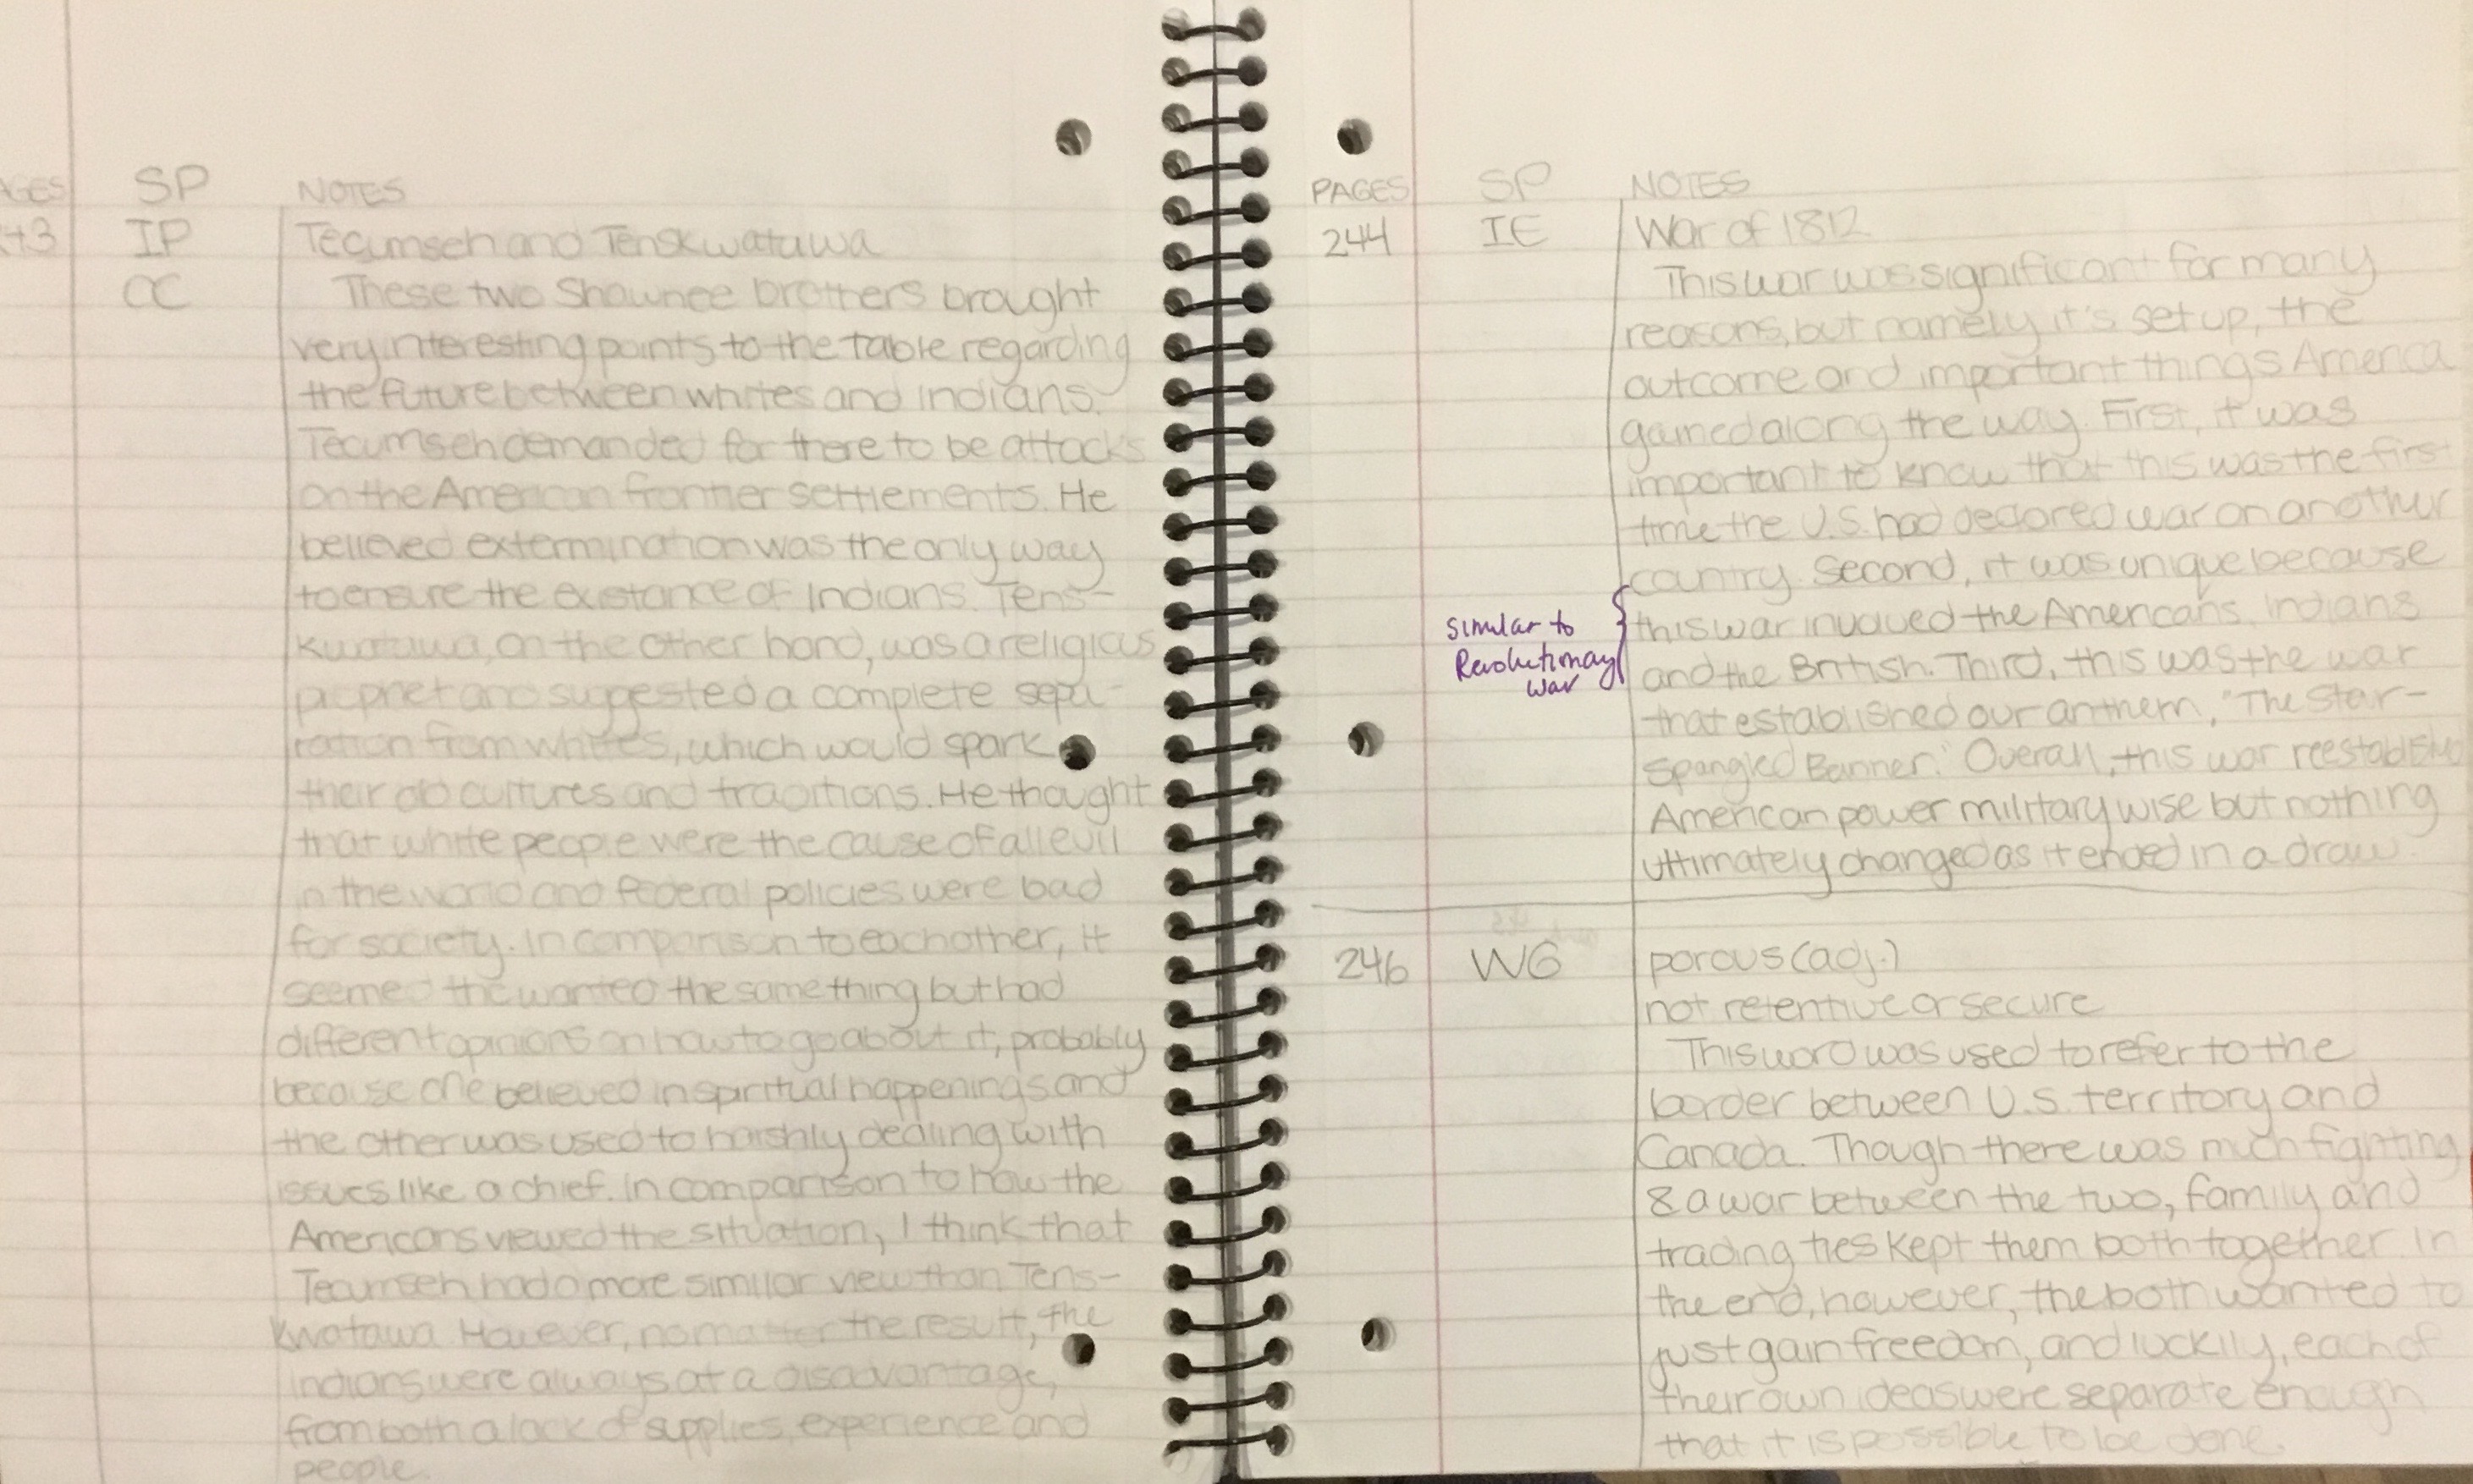 AGES SP NOTES
43 IP Tecumseh and Tenskwatawa
CC These two Shawnee brothers brought
very interesting points to the table regarding
the future between whites and Indians.
Tecumseh demanded for there to be attacks
on the American frontier settlements. He
believed extermination was the only way
to ensure the existance of Indians. Tens-
kwatawa, on the other hand, was a religious
prophet and suggested a complete sepa-
ration from whites, which would spark
their old cultures and traditions. He thought
that white people were the cause of all evil
in the world and federal policies were bad
for society. In comparison to eachother, it
seemed the wanted the same thing but had
different opinions on how to go about it, probably
because one believed in spiritual happenings and
the other was used to harshly dealing with
issues like a chief. In comparison to how the
Americans viewed the situation, I think that
Tecumseh had a more similar view than Tens-
kwatawa. However, no matter the result, the
Indians were always at a disadvantage,
from both a lack of supplies, experience and
people.
PAGES SP NOTES
244 IE War of 1812
This war was significant for many
reasons, but namely it's set up, the
outcome and important things America
gained along the way. First, it was
important to know that this was the first
time the U.S. had declared war on another
country. Second, it was unique because
this war involved the Americans, Indians
and the British. Third, this was the war
that established our anthem, "The Star-
Spangled Banner." Overall, this war reestablished
American power military wise but nothing
ultimately changed as it ended in a draw.
similar to
Revolutionary
war
246 WG porous (adj.)
not retentive or secure
This word was used to refer to the
border between U.S. territory and
Canada. Though there was much fighting
& a war between the two, family and
trading ties kept them both together. In
the end, however, the both wanted to
just gain freedom, and luckily, each of
their own ideas were separate enough
that it is possible to be done.